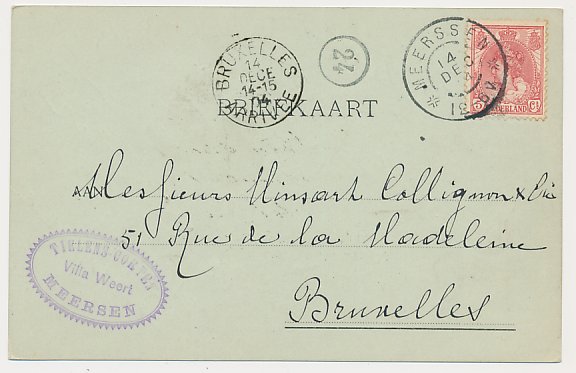 BRUXELLES
14
DECE
14-15
04
ARRIVEE
24
MEERSSEN
14
DEC
12
9V
5 Ct
NEDERLAND
BRIEFKAART
AAN Messieurs Winsart Collignon & Cie
51 Rue de la Madeleine
Bruxelles
TIELENS
Villa Weert
MEERSEN